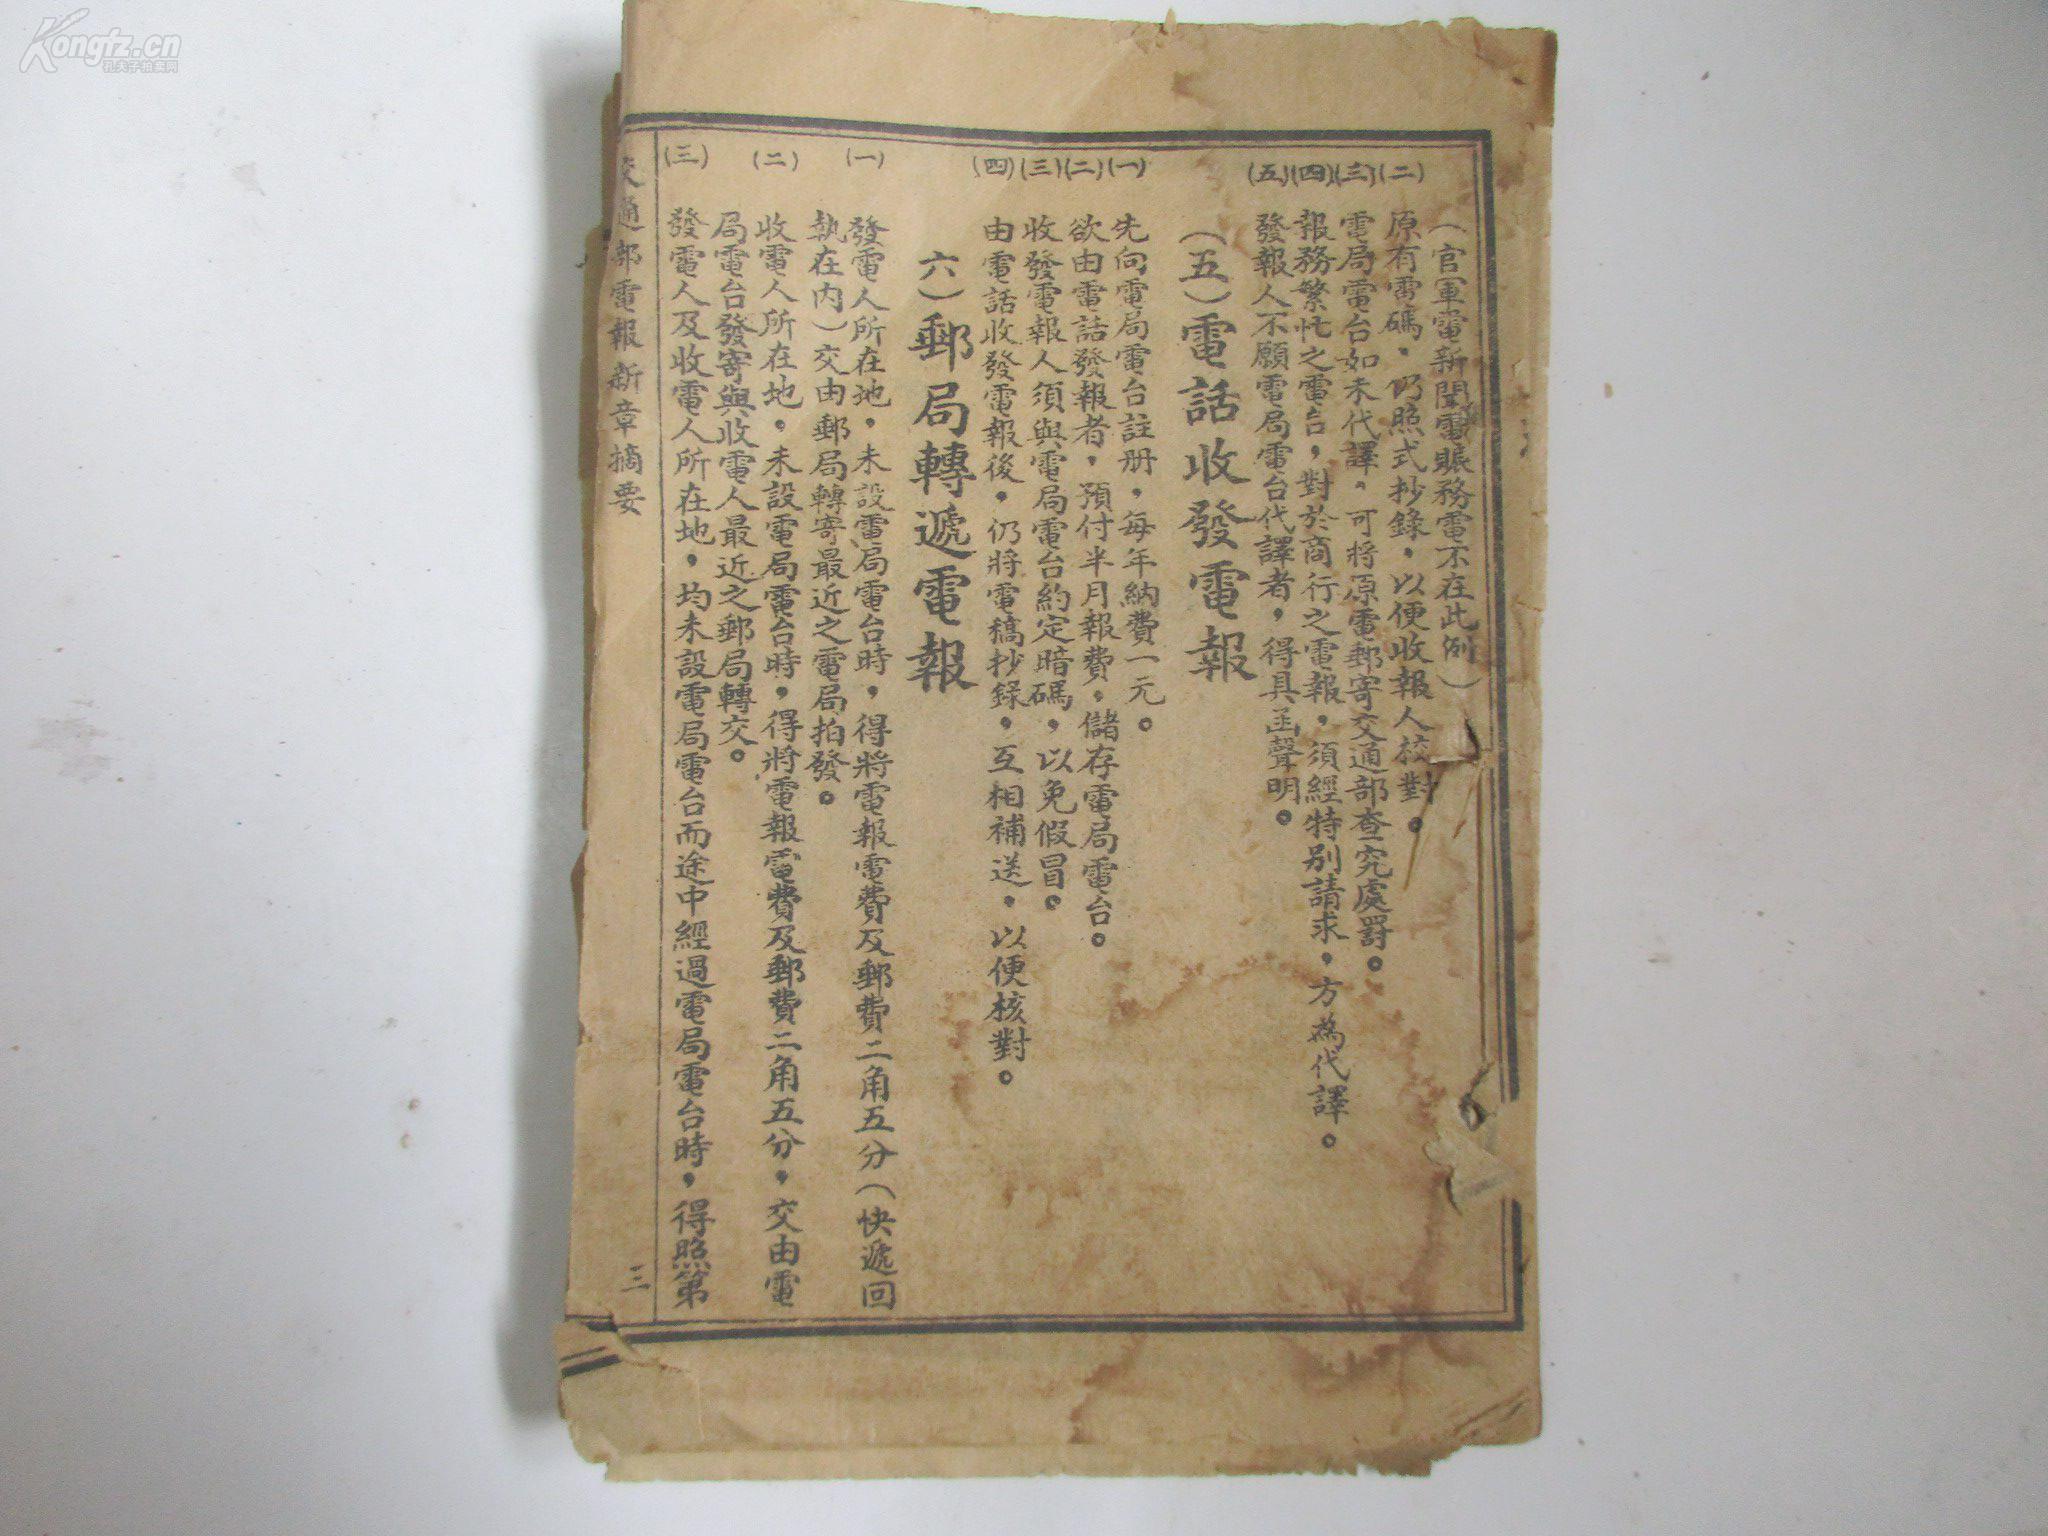 （官軍電新聞電賬務電不在此例）
（二）原有電碼，仍照式抄錄，以便收報人校對。
（三）電局電台如未代譯，可將原電郵寄交通部查究處罰。
（四）報務繁忙之電台，對於商行之電報，須經特別請求，方為代譯。
（五）發報人不願電局電台代譯者，得具函聲明。
（五）電話收發電報
（一）先向電局電台註册，每年納費一元。
（二）欲由電話發報者，預付半月報費，儲存電局電台。
（三）收發電報人須與電局電台約定暗碼，以免假冒。
（四）由電話收發電報後，仍將電稿抄錄，互相補送，以便核對。
六）郵局轉遞電報
（一）發電人所在地，未設電局電台時，得將電報電費及郵費二角五分（快遞回
執在內）交由郵局轉寄最近之電局拍發。
（二）收電人所在地，未設電局電台時，得將電報電費及郵費二角五分，交由電
局電台發寄與收電人最近之郵局轉交。
（三）發電人及收電人所在地，均未設電局電台而途中經過電局電台時，得照第
交通部電報新章摘要
三
Kongfz.cn
孔夫子拍卖网